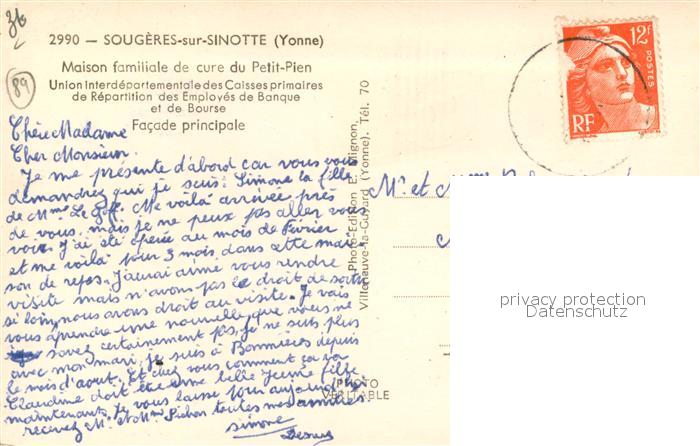 36
2990 — SOUGÈRES-sur-SINOTTE (Yonne)
89
Maison familiale de cure du Petit-Pien
Union Interdépartementale des Caisses primaires
de Répartition des Employés de Banque
et de Bourse
Façade principale
Chère Madame
Cher Monsieur.
Je me présente d'abord car vous vous
demandrez qui je suis: Simone la fille
de Mme Le Goff. Me voilà arrivée près
de vous. mais je ne peux pas aller vous
voir. J'ai été opérée au mois de Février
et me voilà pour 3 mois dans cette mai
son de repos. J'aurai aimé vous rendre
visite mais n'avons pas le droit de sortir
si loin, nous avons droit au visite. Je vais
vous aprendre une nouvelle que vous ne
savez certainement pas, je ne suis plus
avec mon mari, je suis à Bonnières depuis
le mois d'aout. Et chez vous comment ça va
Claudine doit être une belle Jeune fille
maintenant. Je vous laisse pour aujourd'hui
recevez Mr. et Mme Pichon toutes mes amitiés.
Simone
Photo-Edition E.
Villeneuve-la-Guyard (Yonne). Tél. 70
PHOTO
VÉRITABLE
12F
POSTES
RF
Mr. et Mme
privacy protection
Datenschutz